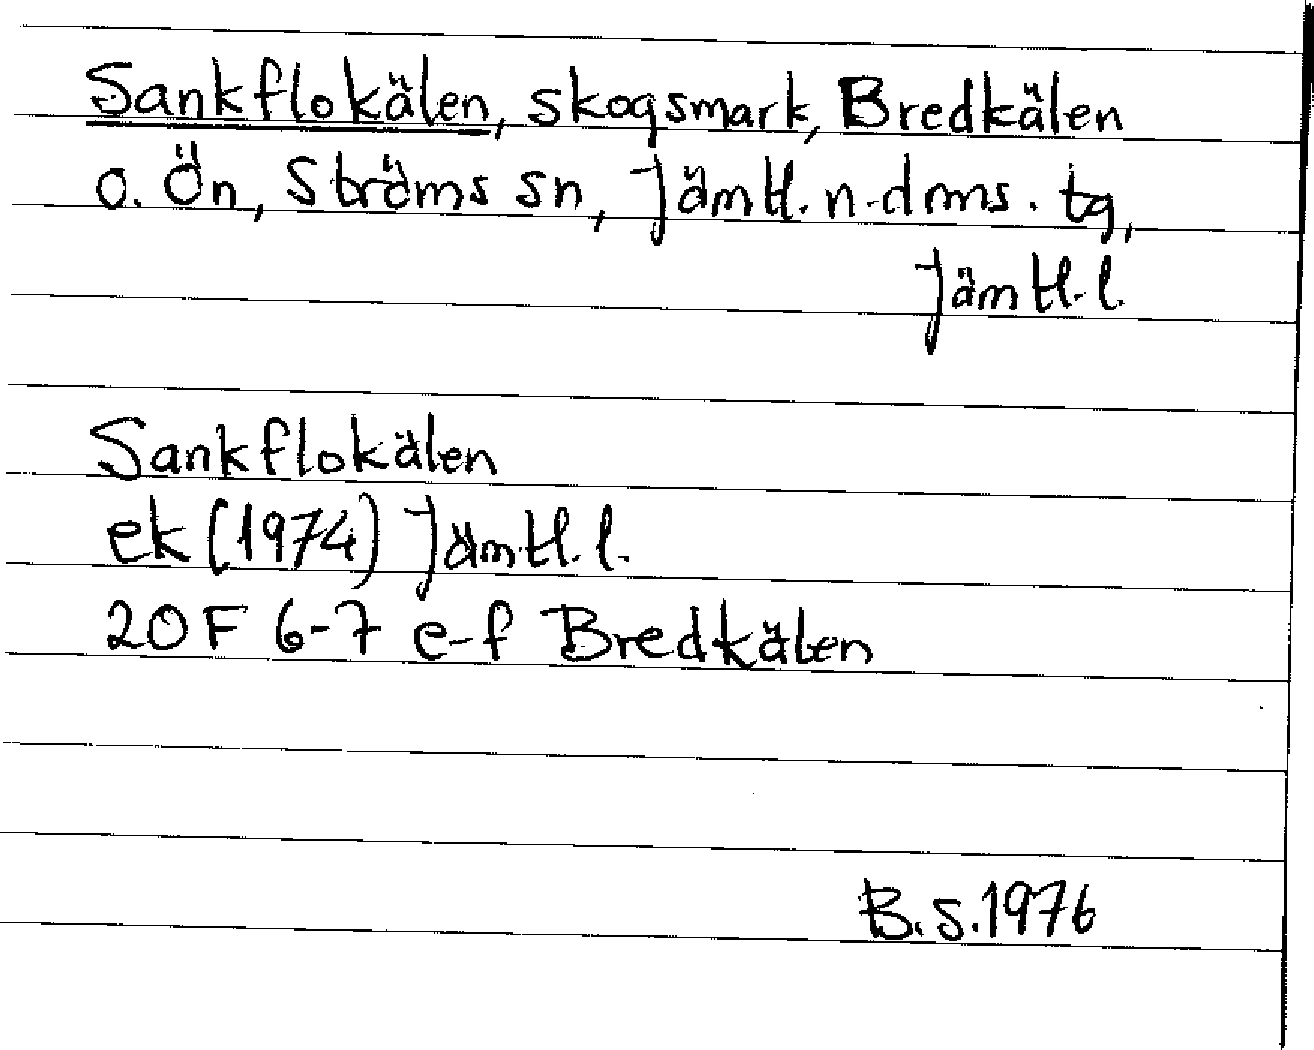 Sankflokälen, skogsmark, Bredkälen
o. Ön, Ströms sn, Jämtl. n. dms. tg,
Jämtl. l.
Sankflokälen
ek (1974) Jämtl. l.
20F 6-7 e-f Bredkälen
B.S. 1976